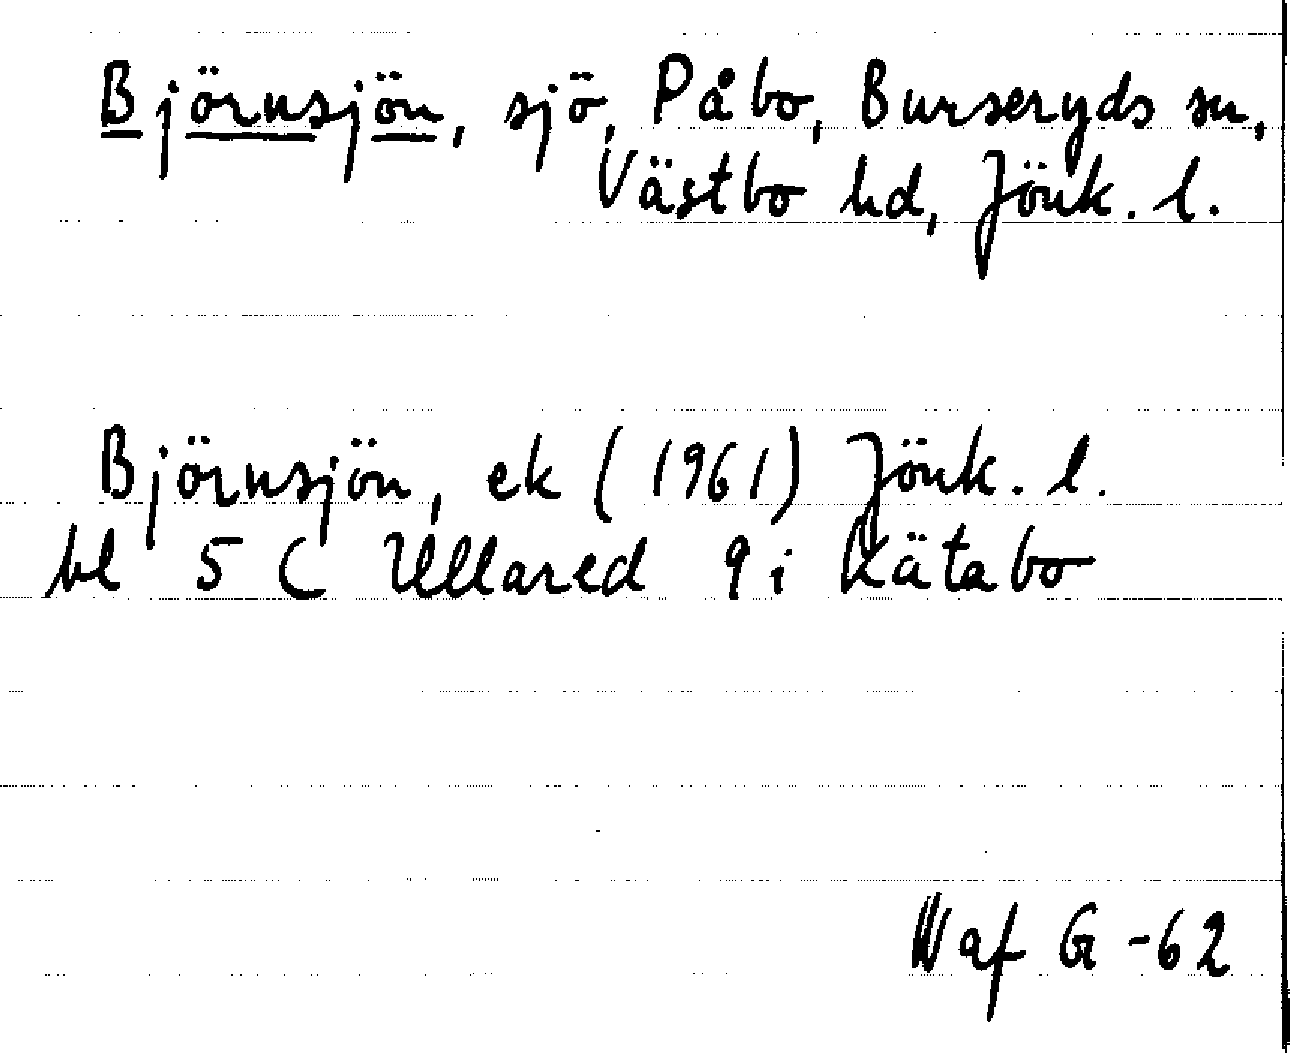 Björnsjön, sjö, Påbo, Burseryds sn,
Västbo hd, Jönk. l.
Björnsjön, ek (1961) Jönk. l.
bl 5 C Ullared 9 i Kätabo
W af G -62